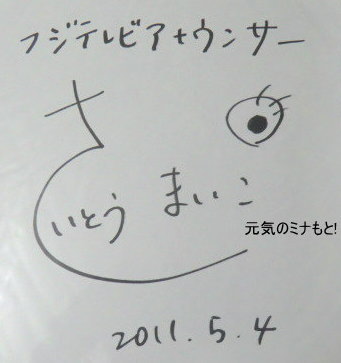 フジテレビアナウンサー
さいとう まいこ
元気のミナもと!
2011.5.4